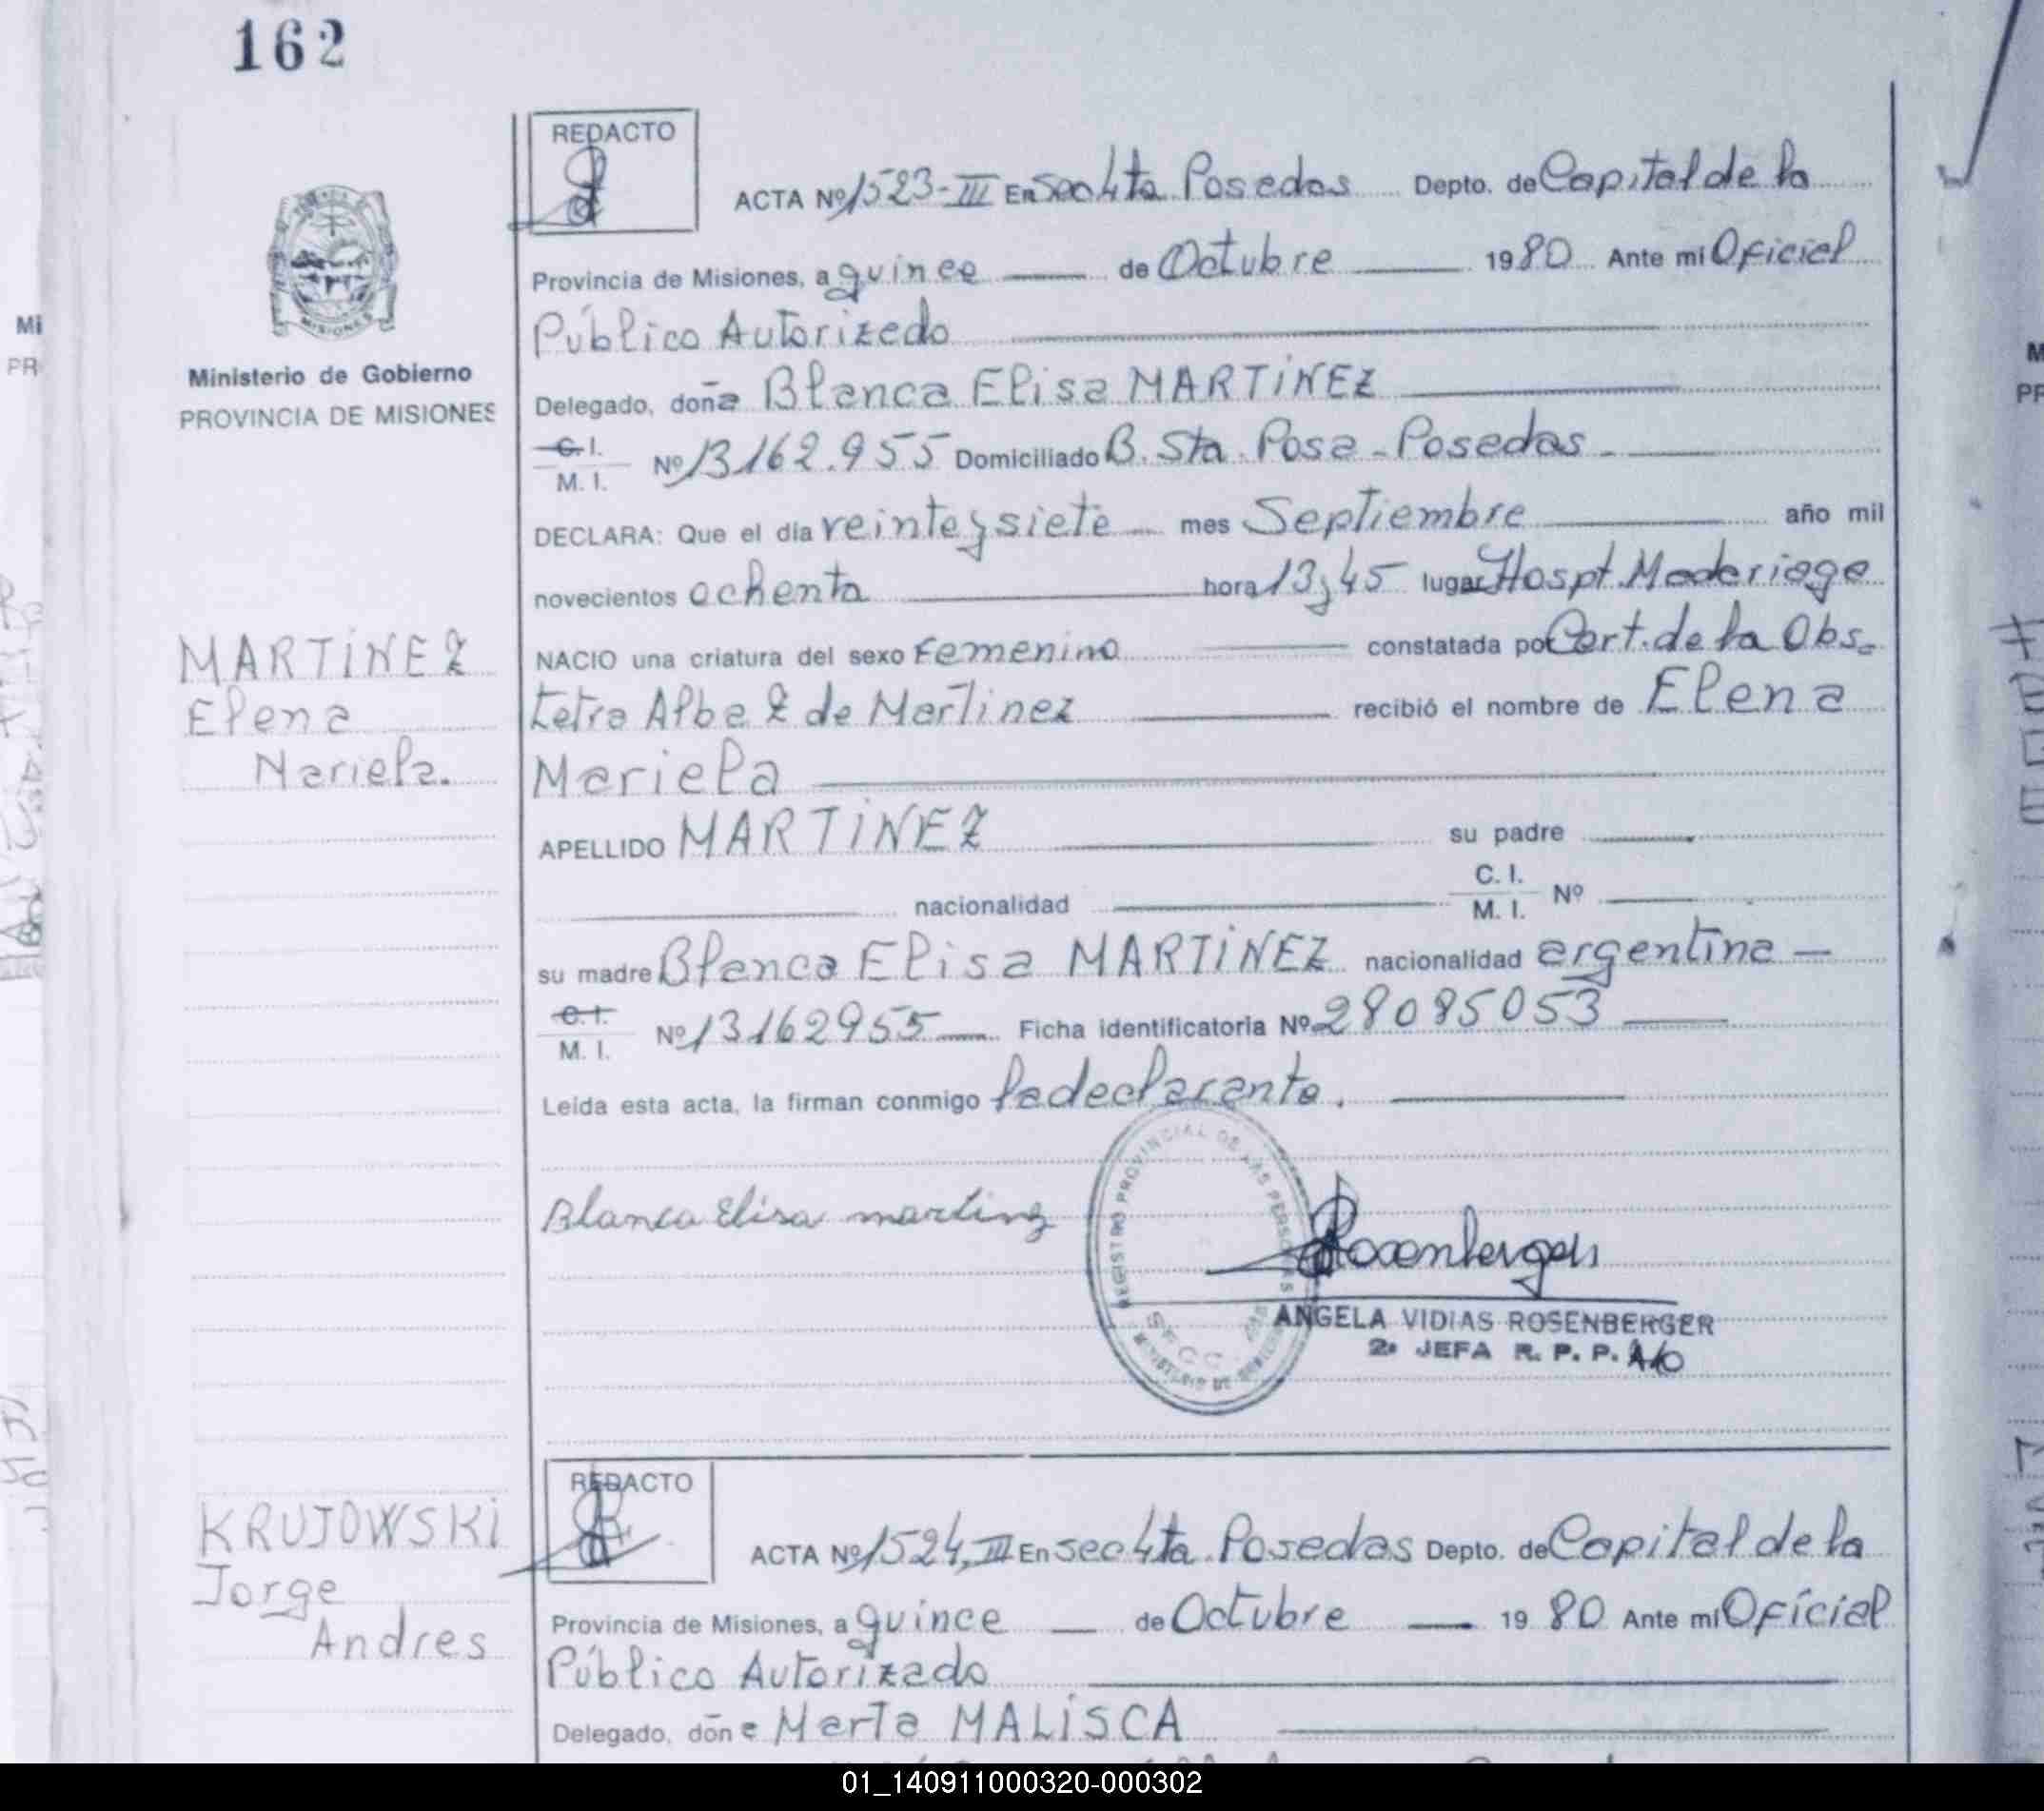 162
REDACTO
ACTA Nº 1523-III En Secc 4ta Posadas Depto. de Capital de la
Provincia de Misiones, a quince de Octubre 1980 Ante mi Oficial
Público Autorizado
Delegado, doña Blanca Elisa MARTÍNEZ
C. I.
M. I. Nº 13162.955 Domiciliado B. Sta. Rosa - Posadas -
DECLARA: Que el día veinte y siete mes Septiembre año mil
novecientos ochenta hora 13,45 lugar Hospt. Madariaga
NACIO una criatura del sexo Femenino constatada por Cert. de la Obs-
tetra Alba Z de Martinez recibió el nombre de Elena
Mariela
APELLIDO MARTÍNEZ su padre
nacionalidad C. I. M. I. Nº
su madre Blanca Elisa MARTÍNEZ nacionalidad argentina
C. I.
M. I. Nº 13162955 Ficha identificatoria Nº 28085053
Leída esta acta, la firman conmigo la declarante.
Blanca Elisa martinz
Rosenberger
REGISTRO PROVINCIAL DE LAS PERSONAS
ANGELA VIDIAS ROSENBERGER
2ª JEFA R. P. P. A/C
MISIONES
Ministerio de Gobierno
PROVINCIA DE MISIONES
MARTÍNEZ
Elena
Mariela.
KRUJOWSKI
Jorge
Andres
REDACTO
ACTA Nº 1524, III En Secc 4ta. Posadas Depto. de Capital de la
Provincia de Misiones, a quince de Octubre 1980 Ante mi Oficial
Público Autorizado
Delegado, doña Marta MALISCA
01_140911000320-000302